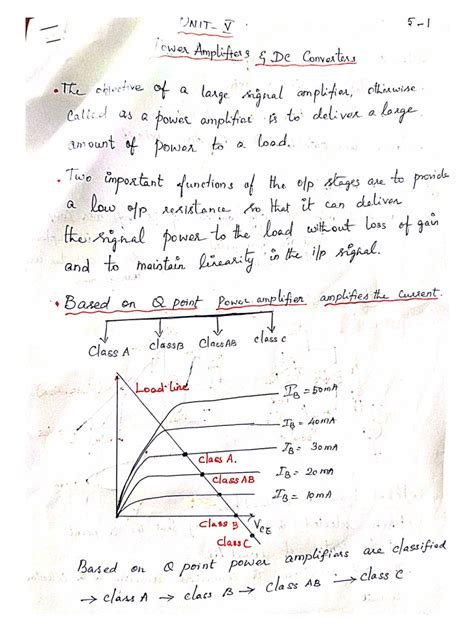 UNIT-V
5-1
Power Amplifiers & DC Converters
• The objective of a large signal amplifier, otherwise
called as a power amplifier is to deliver a large
amount of power to a load.
• Two important functions of the o/p stages are to provide
a low o/p resistance so that it can deliver
the signal power to the load without loss of gain
and to maintain linearity in the i/p signal.
• Based on Q point power amplifier amplifies the current.
Class A classB ClassAB class c
Load-line
IB = 50mA
IB = 40mA
IB = 30mA
Class A.
IB = 20mA
Class AB
IB = 10mA
Class B
VCE
Class C
Based on Q point power amplifiers are classified
→ class A → class B → Class AB → class C